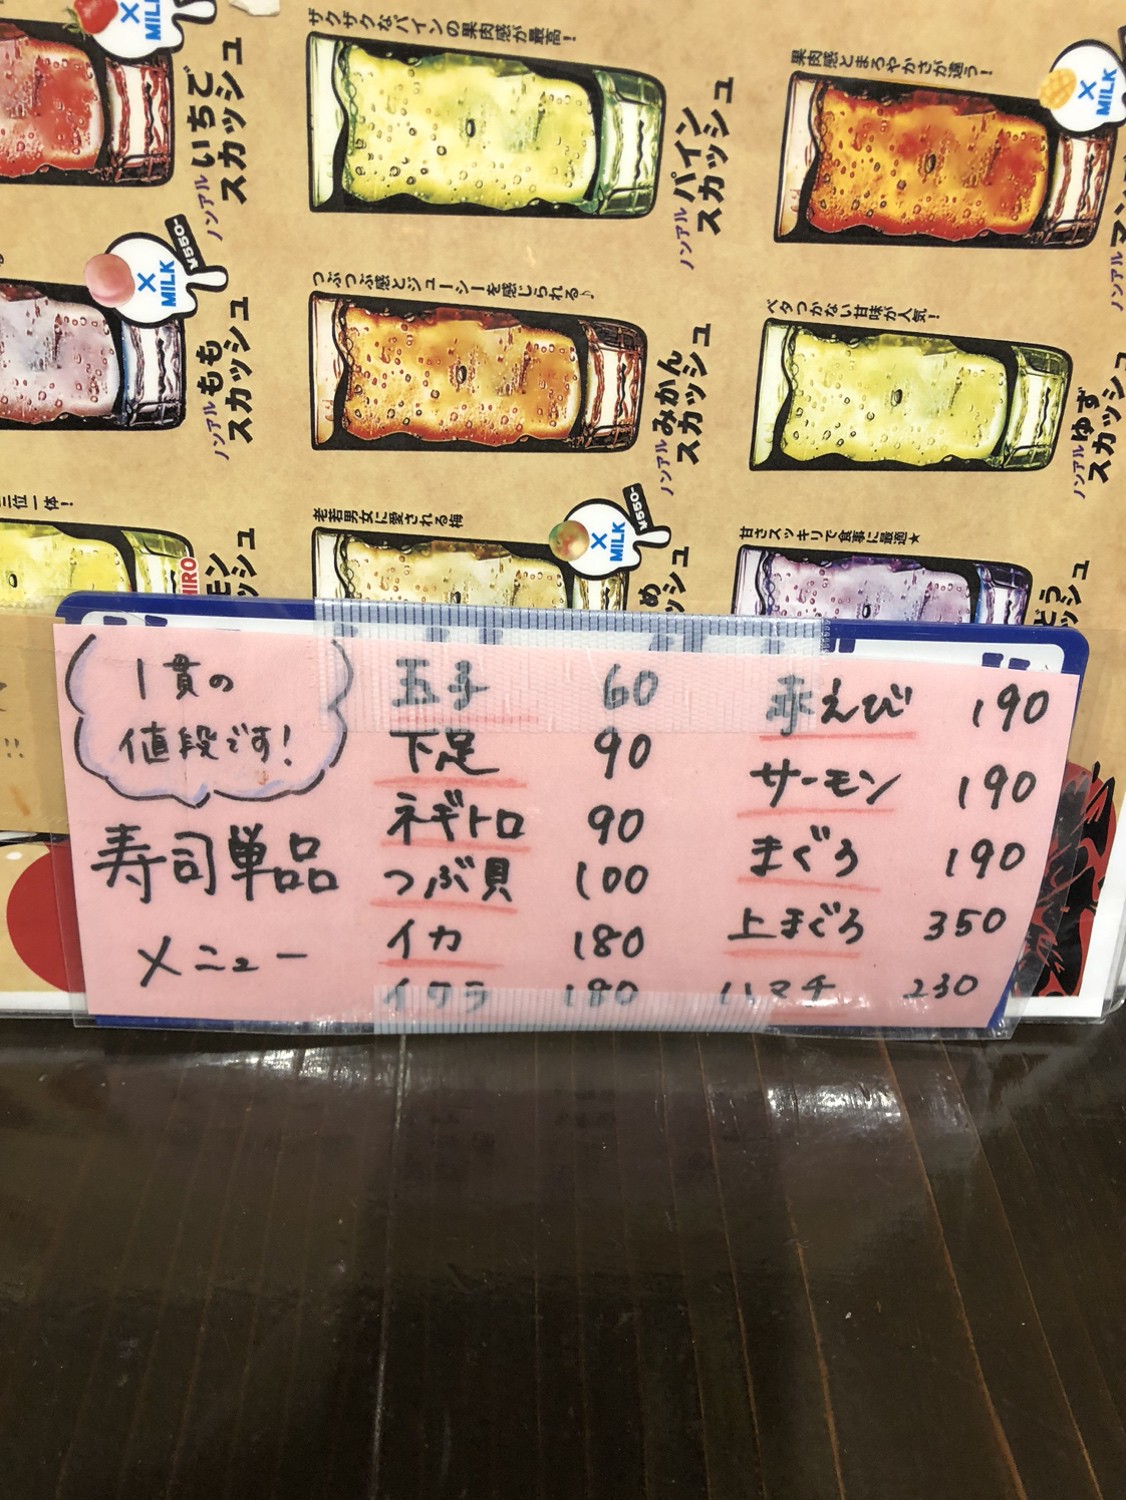 MILK
ノンアル いちご
スカッシュ
ザクザクなパインの果肉感が最高！
ノンアル パイン
スカッシュ
果肉感とまろやかさが違う！
×
MILK
ノンアル
×
MILK
¥550-
ノンアル もも
スカッシュ
つぶつぶ感とジューシーを感じられる♪
ノンアル みかん
スカッシュ
ベタつかない甘味が人気！
ノンアル ゆず
スカッシュ
三位一体！
老若男女に愛される梅
×
MILK
¥550-
甘さスッキリで食事に最適★
1貫の
値段です！
寿司単品
メニュー
玉子 60
下足 90
ネギトロ 90
つぶ貝 100
イカ 180
イクラ 180
赤えび 190
サーモン 190
まぐろ 190
上まぐろ 350
ハマチ 230